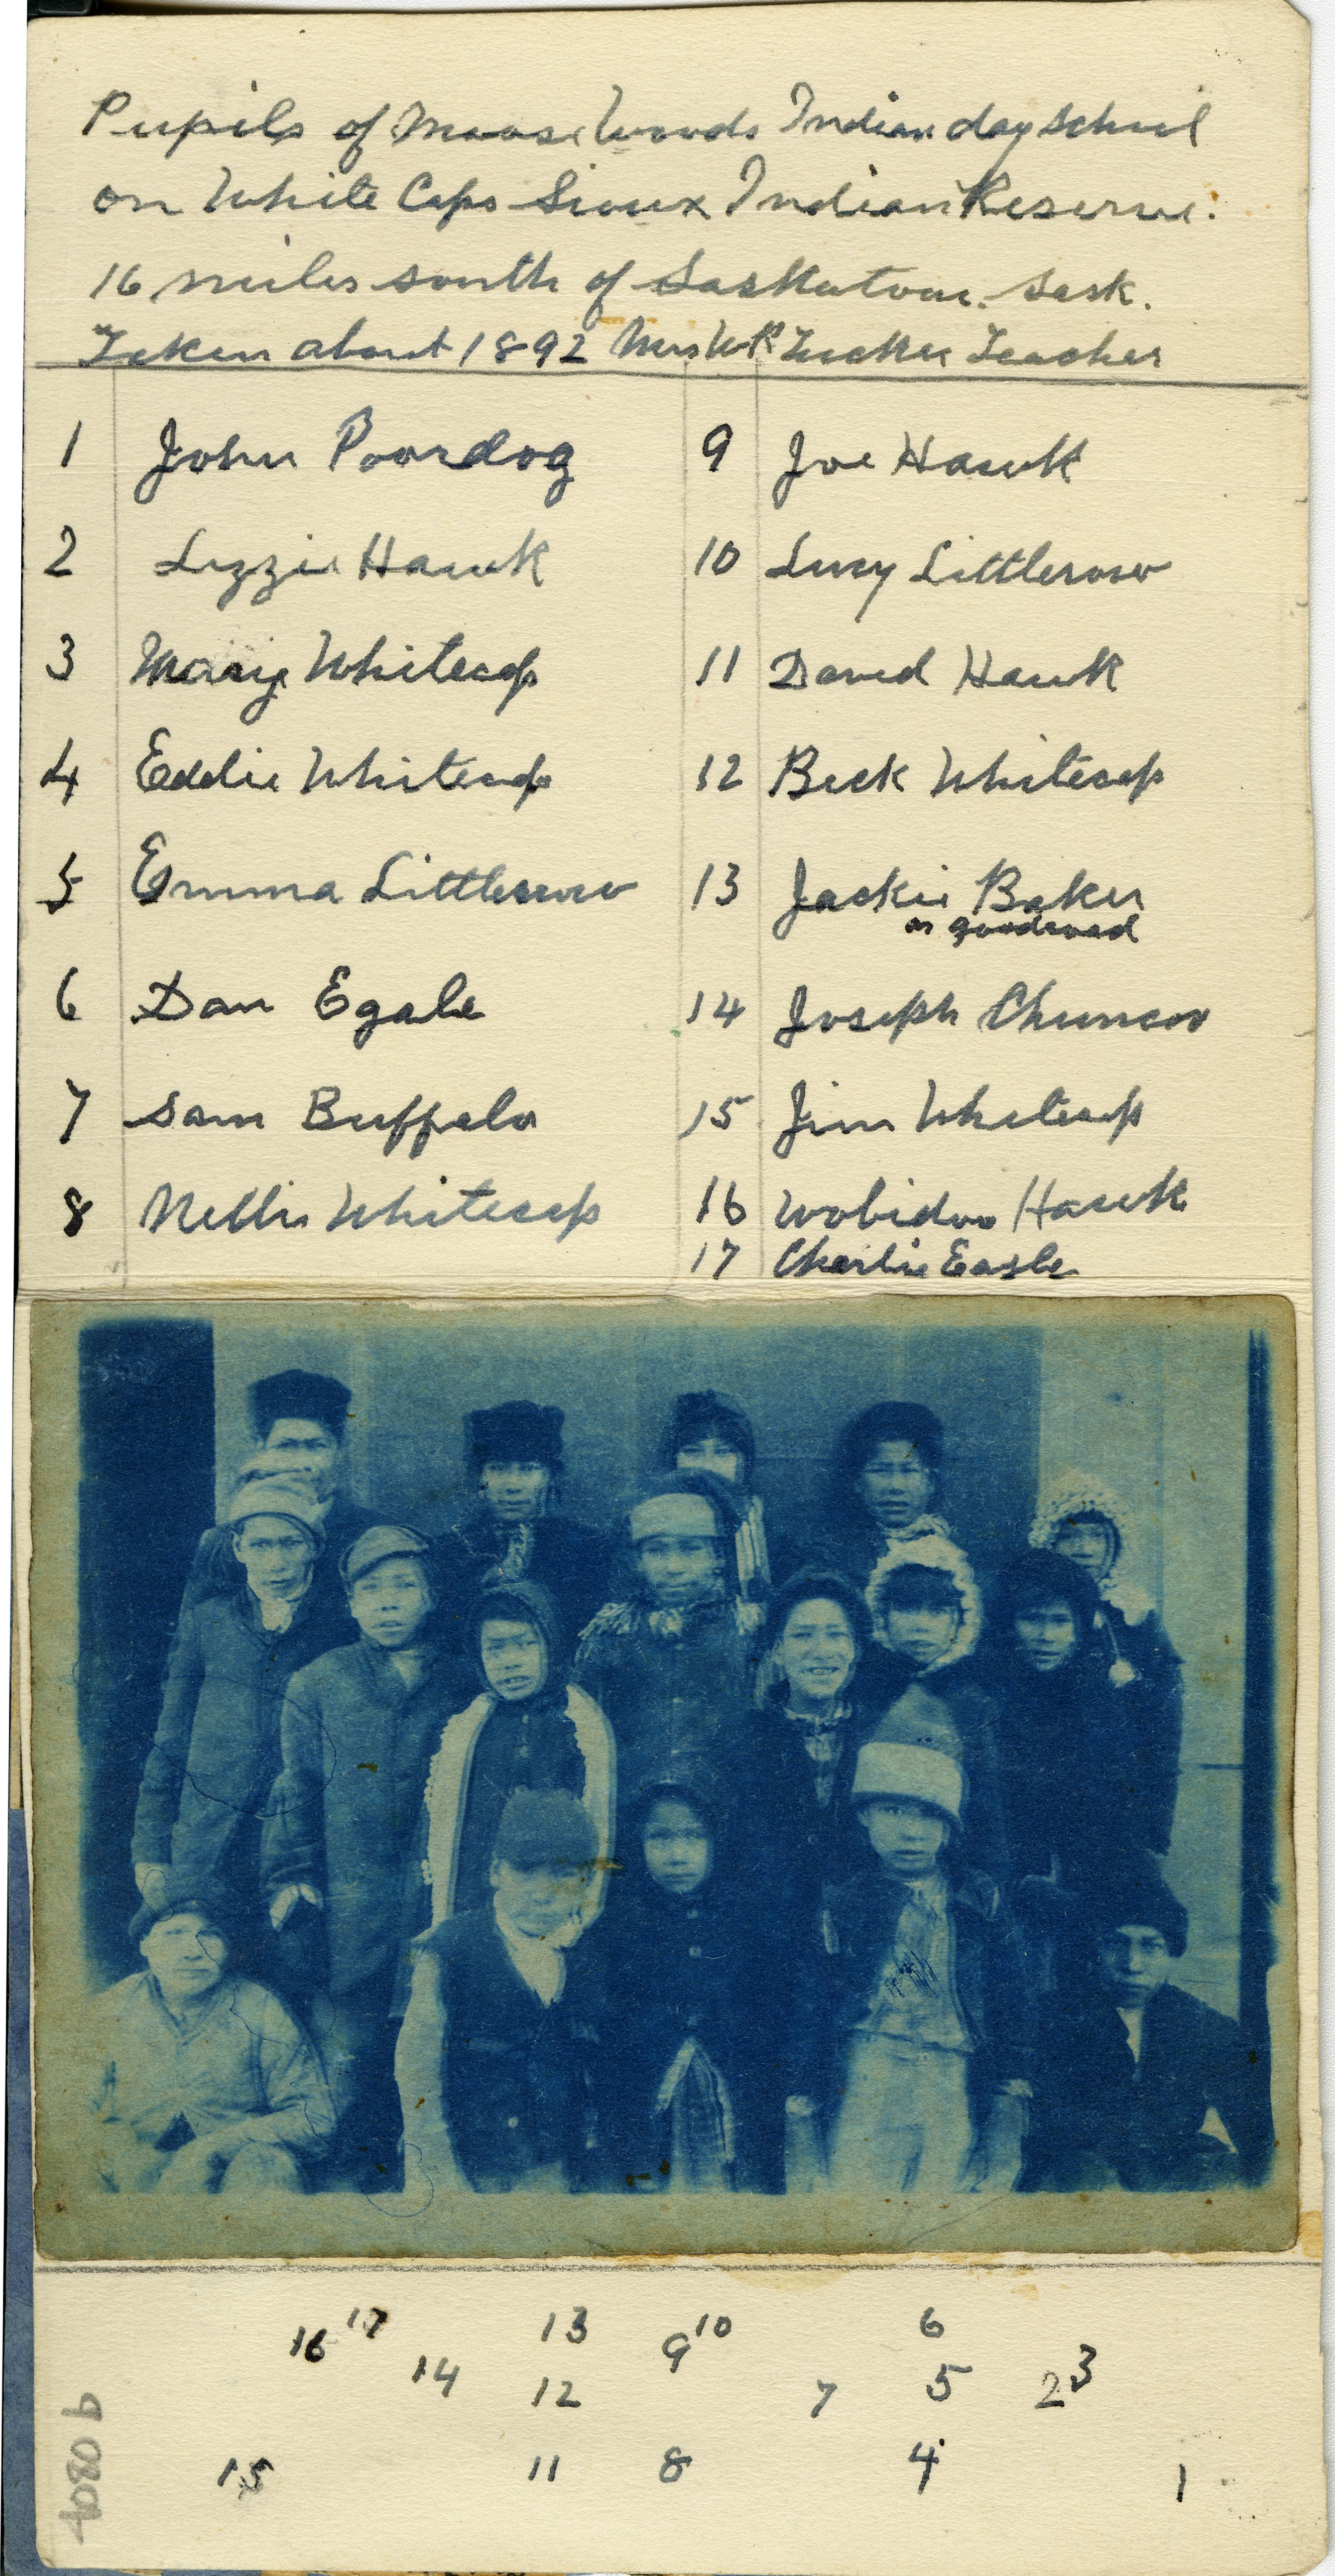 Pupils of Moose Woods Indian day School
on White Caps Sioux Indian Reserve.
16 miles south of Saskatoon. Sask.
Taken about 1892 Mrs W R Tucker Teacher
1 John Poordog
2 Lizzie Hawk
3 Mary Whitecap
4 Eddie Whitecap
5 Emma Littlecrow
6 Dan Egale
7 Sam Buffalo
8 Nellie Whitecap
9 Joe Hawk
10 Lucy Littlecrow
11 David Hawk
12 Beck Whitecap
13 Jackie Baker
or goodroad
14 Joseph
15 Jim Whitecap
16 Hawk
17 Charlie Eagle
16 17 13 9 10 6
14 12 7 5 2 3
15 11 8 4 1